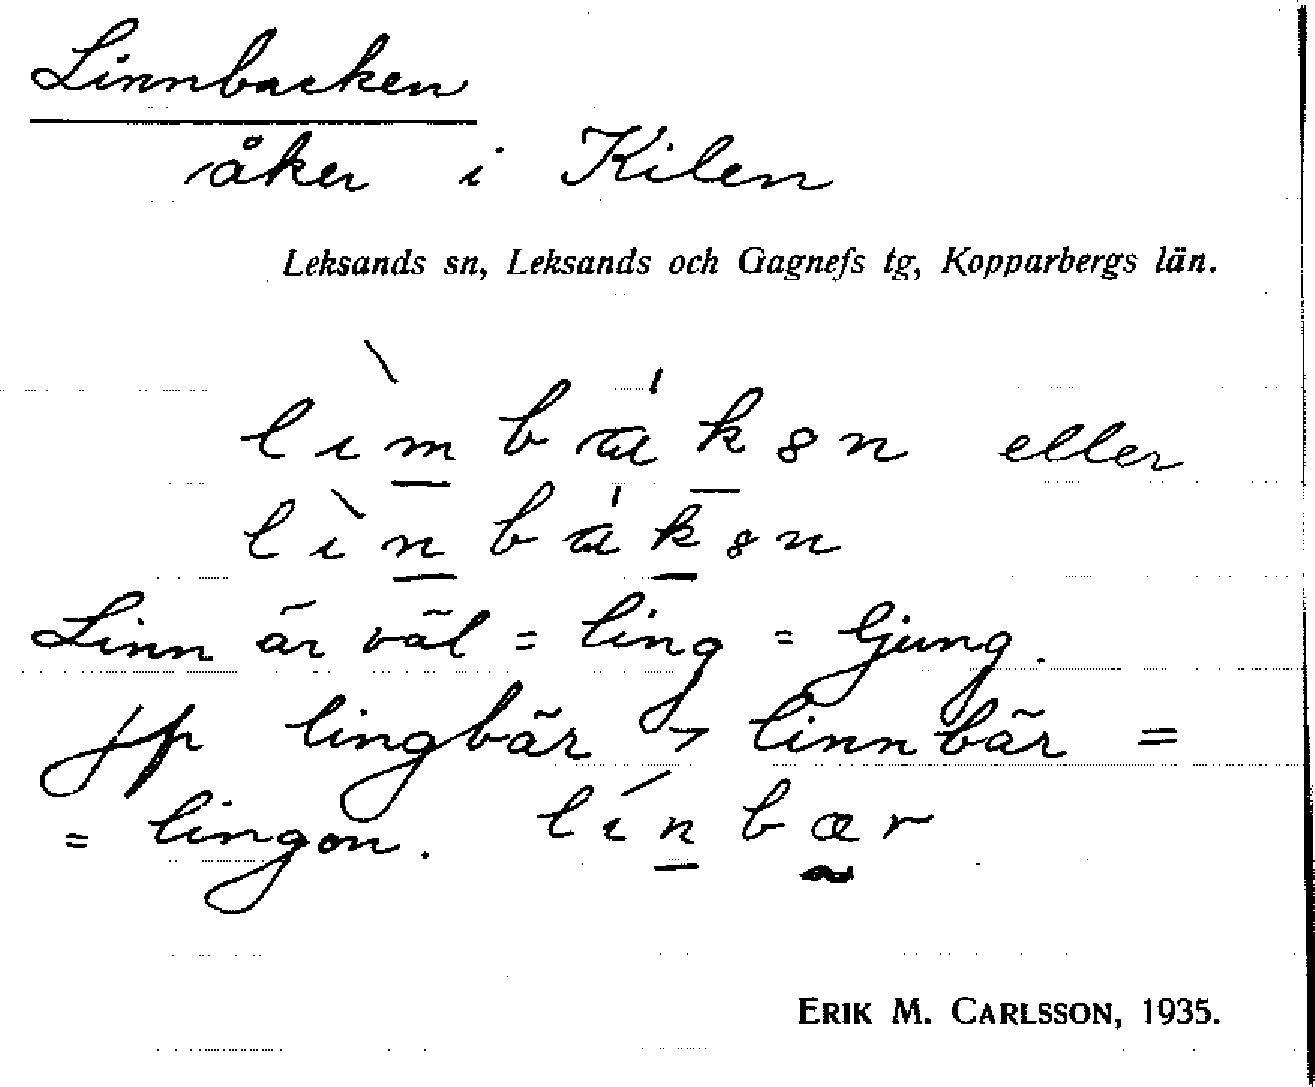 Linnbacken
åker i Kilen
Leksands sn, Leksands och Gagnefs tg, Kopparbergs län.
lìm̲bák̲ən eller
lìn̲bák̲ən
Linn är väl = ling = ljung.
jfr lingbär → linnbär =
= lingon. lín̲bær
ERIK M. CARLSSON, 1935.